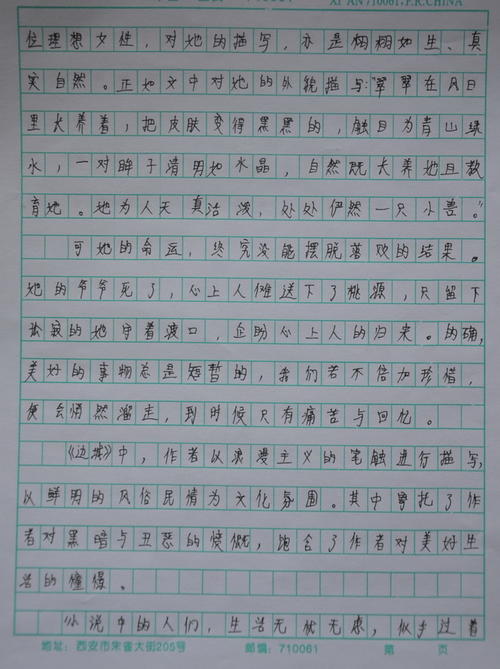 XI'AN 710061, P.R.CHINA
位理想女性，对她的描写，亦是栩栩如生、真
实自然。正如文中对她的外貌描写：“翠翠在风日
里长养着，把皮肤变得黑黑的，触目为青山绿
水，一对眸子清明如水晶，自然既长养她且教
育她。她为人天真活泼，处处俨然一只小兽。”
可她的命运，终究没能摆脱落败的结果。
她的爷爷死了，心上人傩送下了桃源，只留下
孤寂的她守着渡口，企盼心上人的归来。的确，
美好的事物总是短暂的，我们若不倍加珍惜，
便会悄然溜走，到时候只有痛苦与回忆。
《边城》中，作者以浪漫主义的笔触进行描写，
以鲜明的风俗民情为文化氛围。其中寄托了作
者对黑暗与丑恶的愤慨，饱含了作者对美好生
活的憧憬。
小说中的人们，生活无忧无虑，似乎过着
地址：西安市朱雀大街205号 邮编：710061 第 页